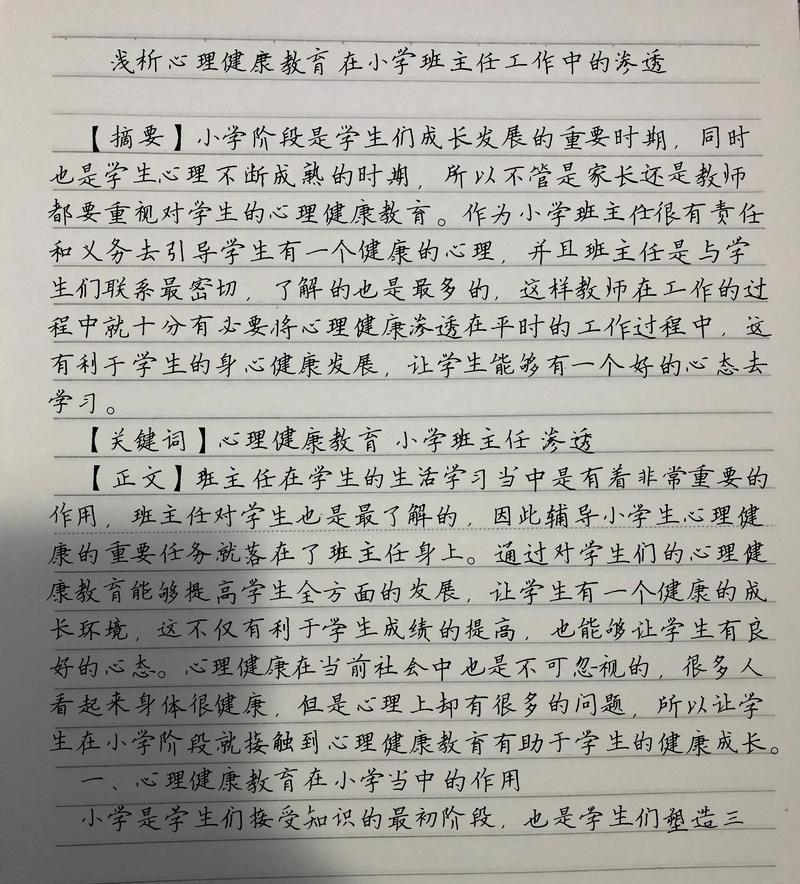 浅析心理健康教育在小学班主任工作中的渗透
【摘要】小学阶段是学生们成长发展的重要时期，同时
也是学生心理不断成熟的时期，所以不管是家长还是教师
都要重视对学生的心理健康教育。作为小学班主任很有责任
和义务去引导学生有一个健康的心理，并且班主任是与学
生们联系最密切，了解的也是最多的，这样教师在工作的过
程中就十分有必要将心理健康渗透在平时的工作过程中，这
有利于学生的身心健康发展，让学生能够有一个好的心态去
学习。
【关键词】心理健康教育 小学班主任 渗透
【正文】班主任在学生的生活学习当中是有着非常重要的
作用，班主任对学生也是最了解的，因此辅导小学生心理健
康的重要任务就落在了班主任身上。通过对学生们的心理健
康教育能够提高学生全方面的发展，让学生有一个健康的成
长环境，这不仅有利于学生成绩的提高，也能够让学生有良
好的心态。心理健康在当前社会中也是不可忽视的，很多人
看起来身体很健康，但是心理上却有很多的问题，所以让学
生在小学阶段就接触到心理健康教育有助于学生的健康成长。
一、心理健康教育在小学当中的作用
小学是学生们接受知识的最初阶段，也是学生们塑造三